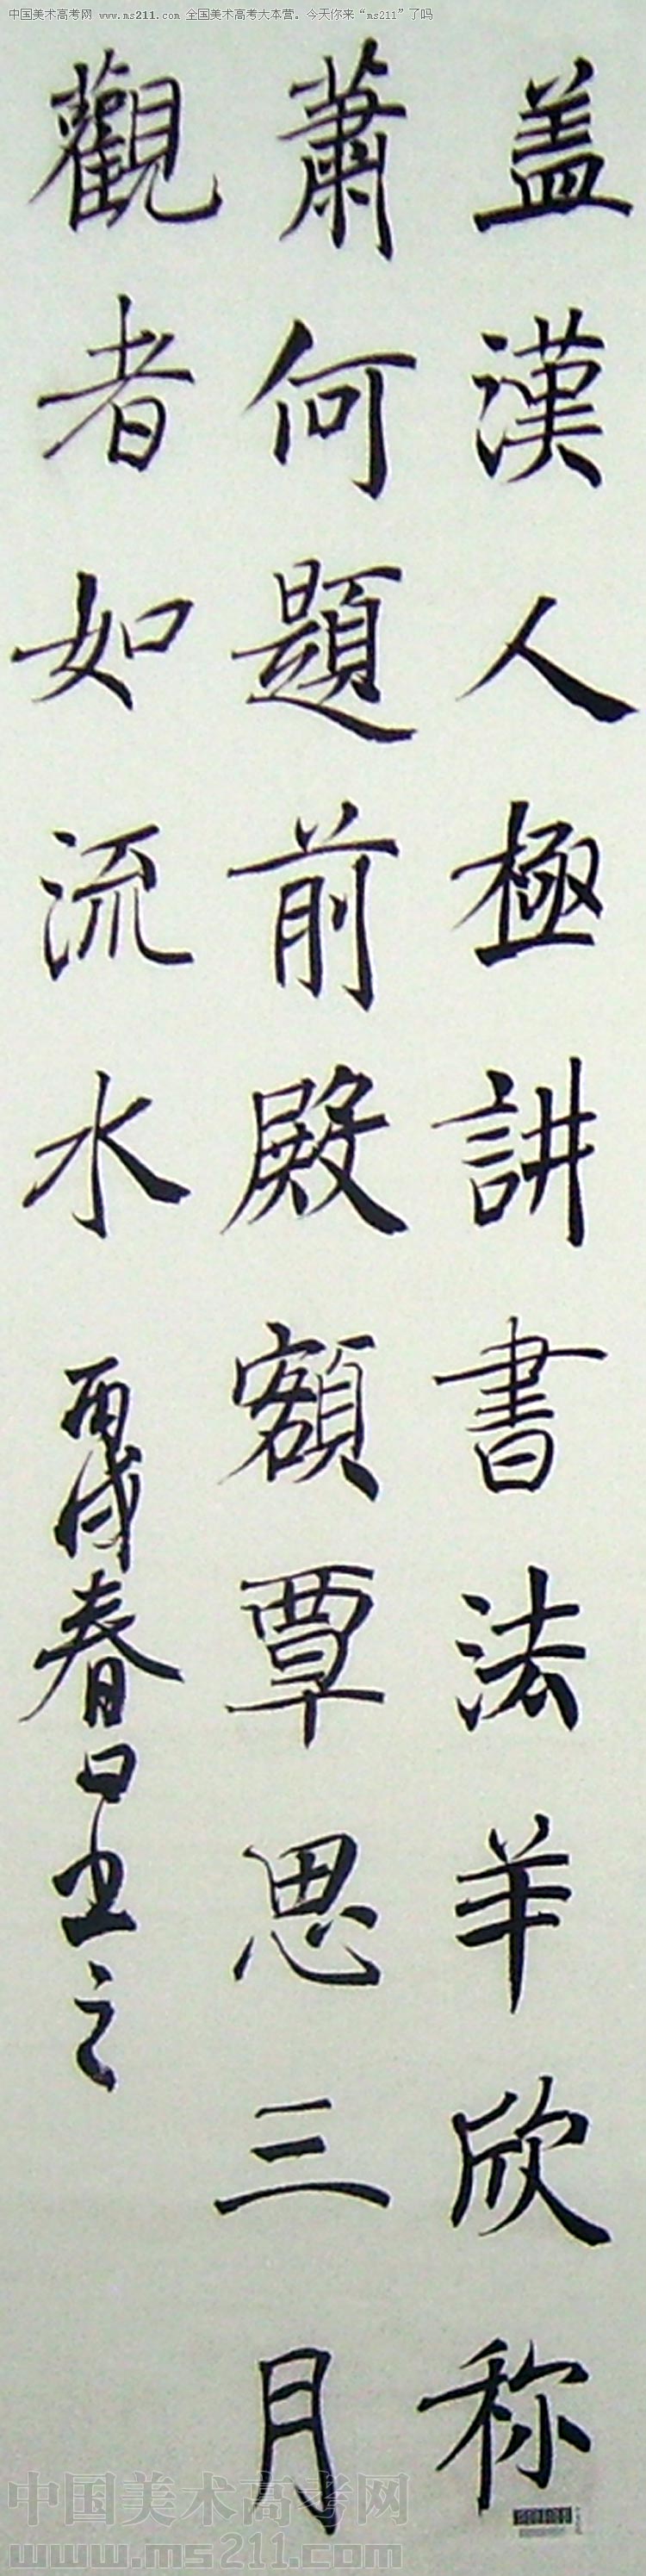 中国美术高考网 www.ms211.com 全国美术高考大本营。今天你来“ms211”了吗
盖漢人極講書法羊欣称
蕭何題前殿額覃思三月
觀者如流水
丙戌春日書之
中国美术高考网
www.ms211.com